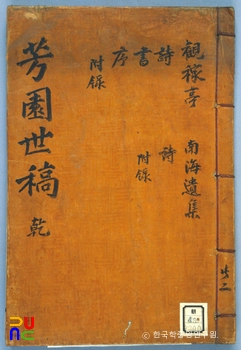 觀稼亭 南海遺集
詩 詩
書 附錄
序
附錄
芳園世稿 乾
共二
PUNC
© 한국학중앙연구원